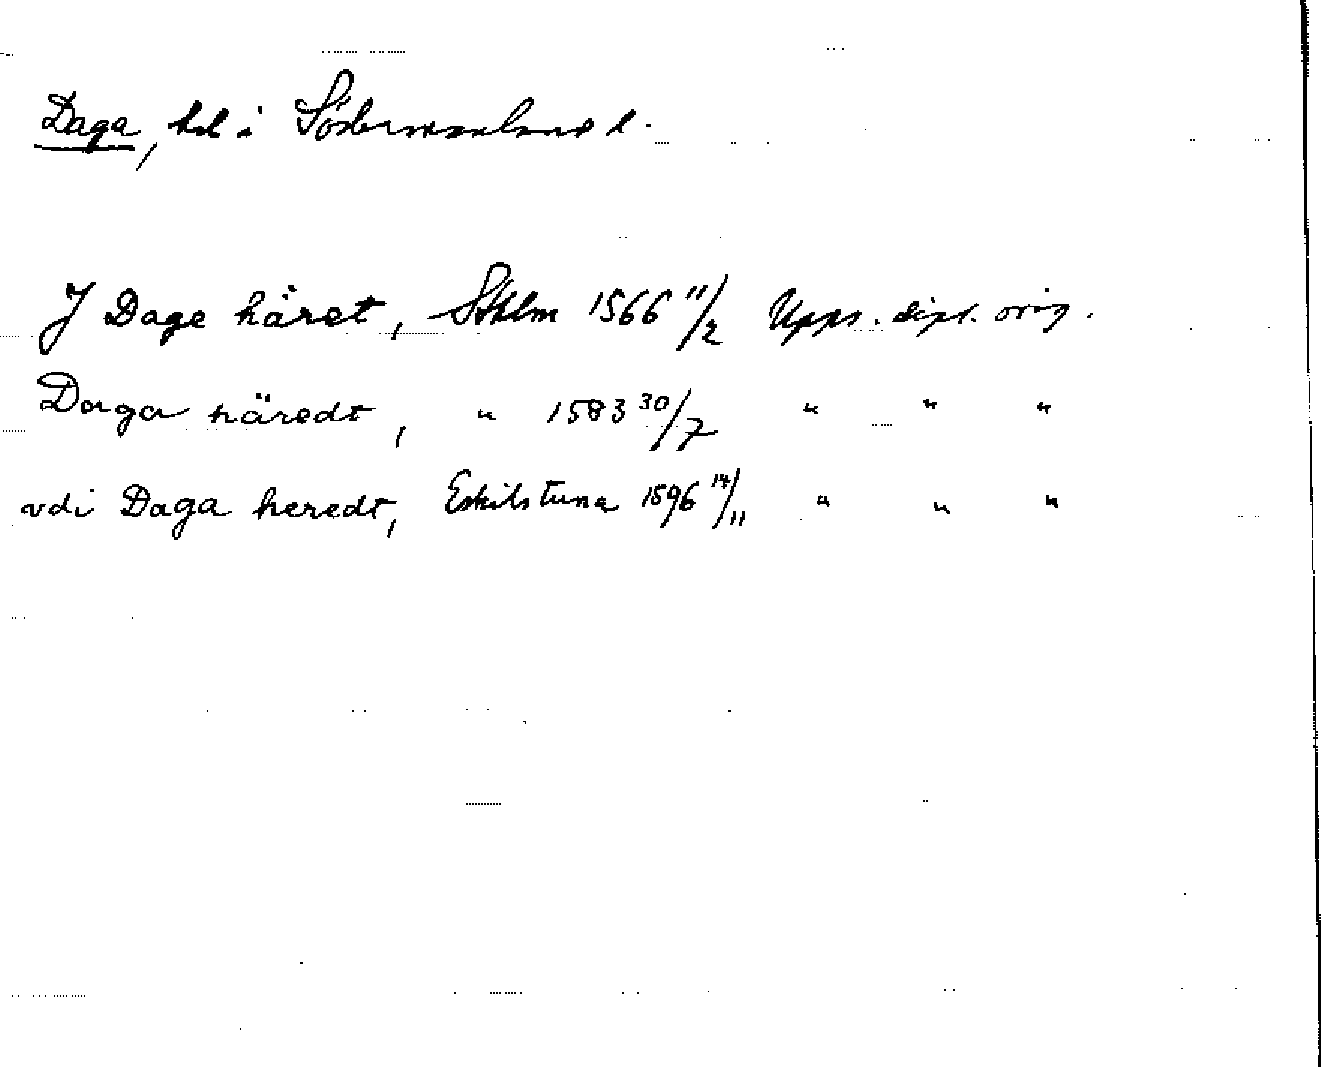 Daga, hd i Södermanlands l.
J Dage häret, Sthlm 1566 11/2 Upps. dipl. orig.
Daga häredt, " 1583 30/7 " " "
vdi Daga heredt, Eskilstuna 1596 14/11 " " "